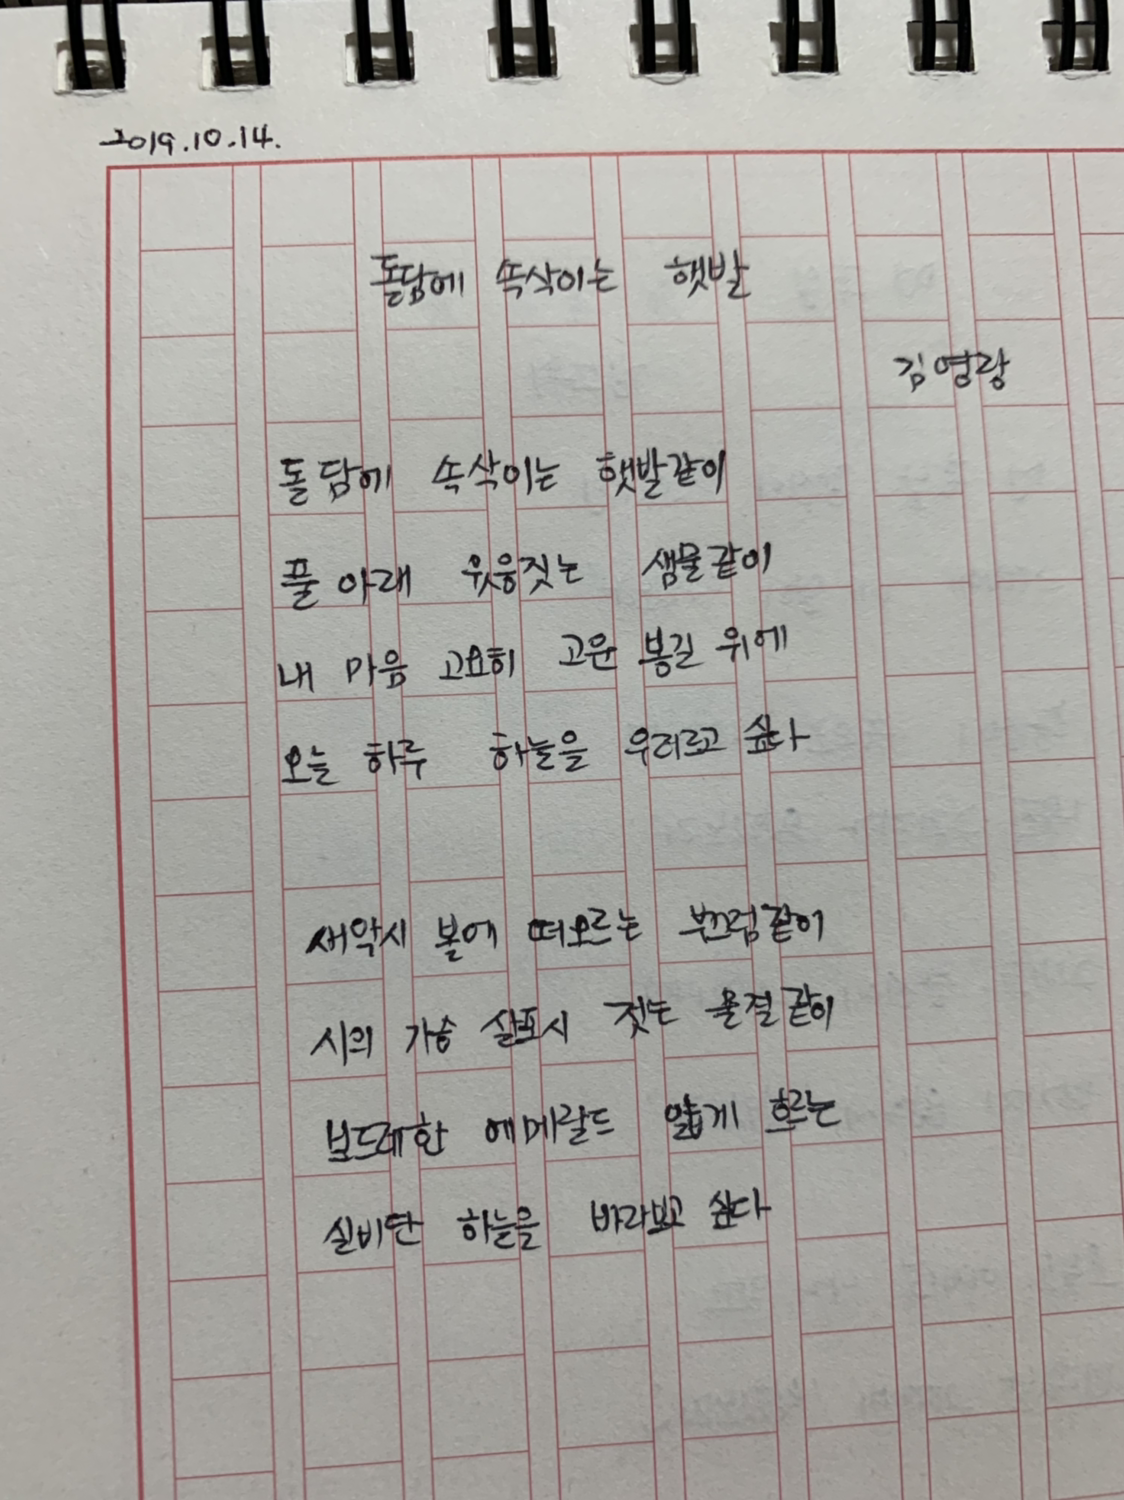 2019.10.14.
돌담에 속삭이는 햇발
김영랑
돌담에 속삭이는 햇발같이
풀 아래 웃음짓는 샘물같이
내 마음 고요히 고운 봄길 위에
오늘 하루 하늘을 우러르고 싶다
새악시 볼에 떠오르는 부끄럼같이
시의 가슴 살포시 젖는 물결같이
보드레한 에메랄드 얇게 흐르는
실비단 하늘을 바라보고 싶다